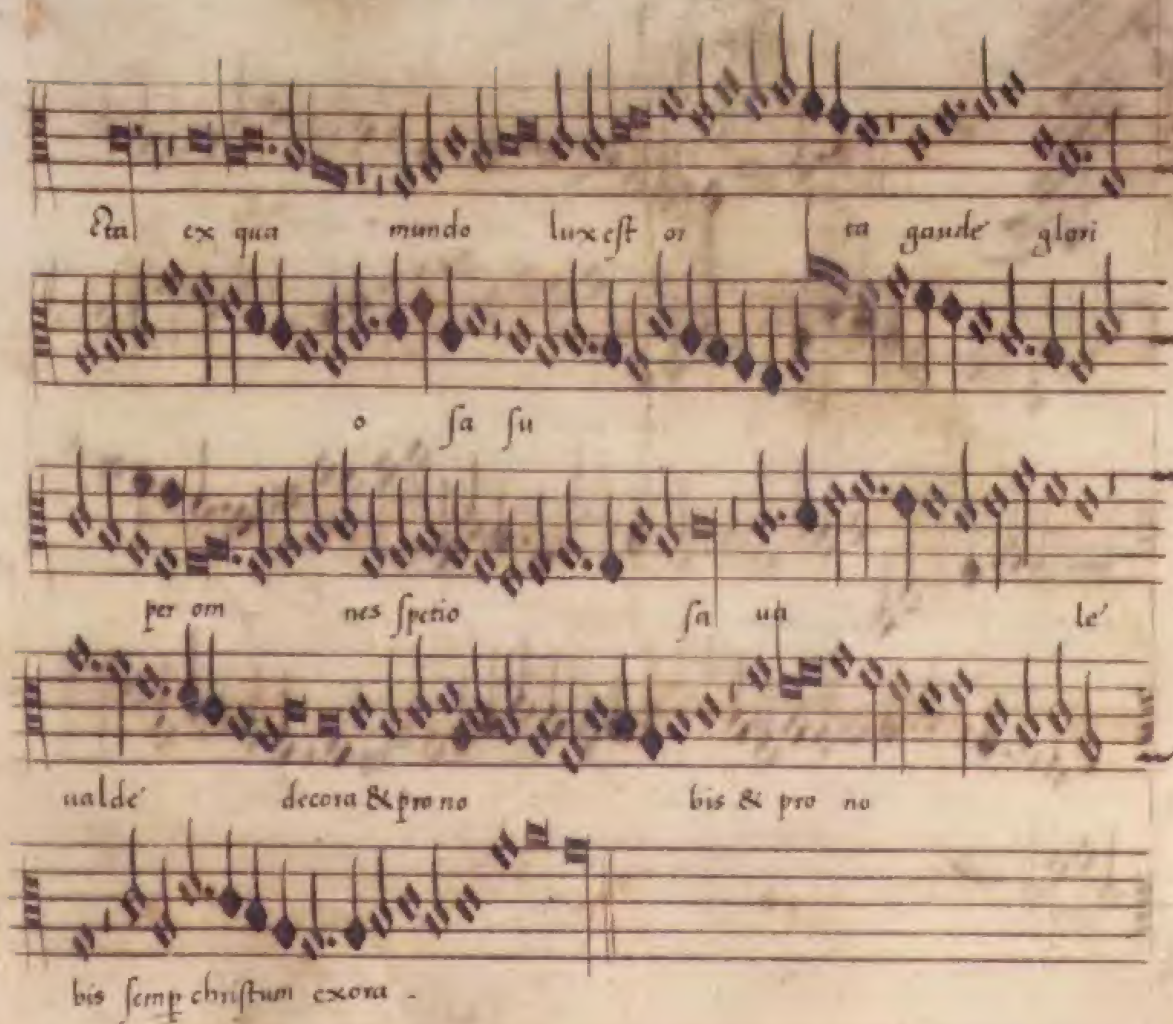 cta ex qua mundo lux est or ta gaude glori
o sa su
per om nes spetio sa ua le
ualde decora & pro no bis & pro no
bis semp christum exora .